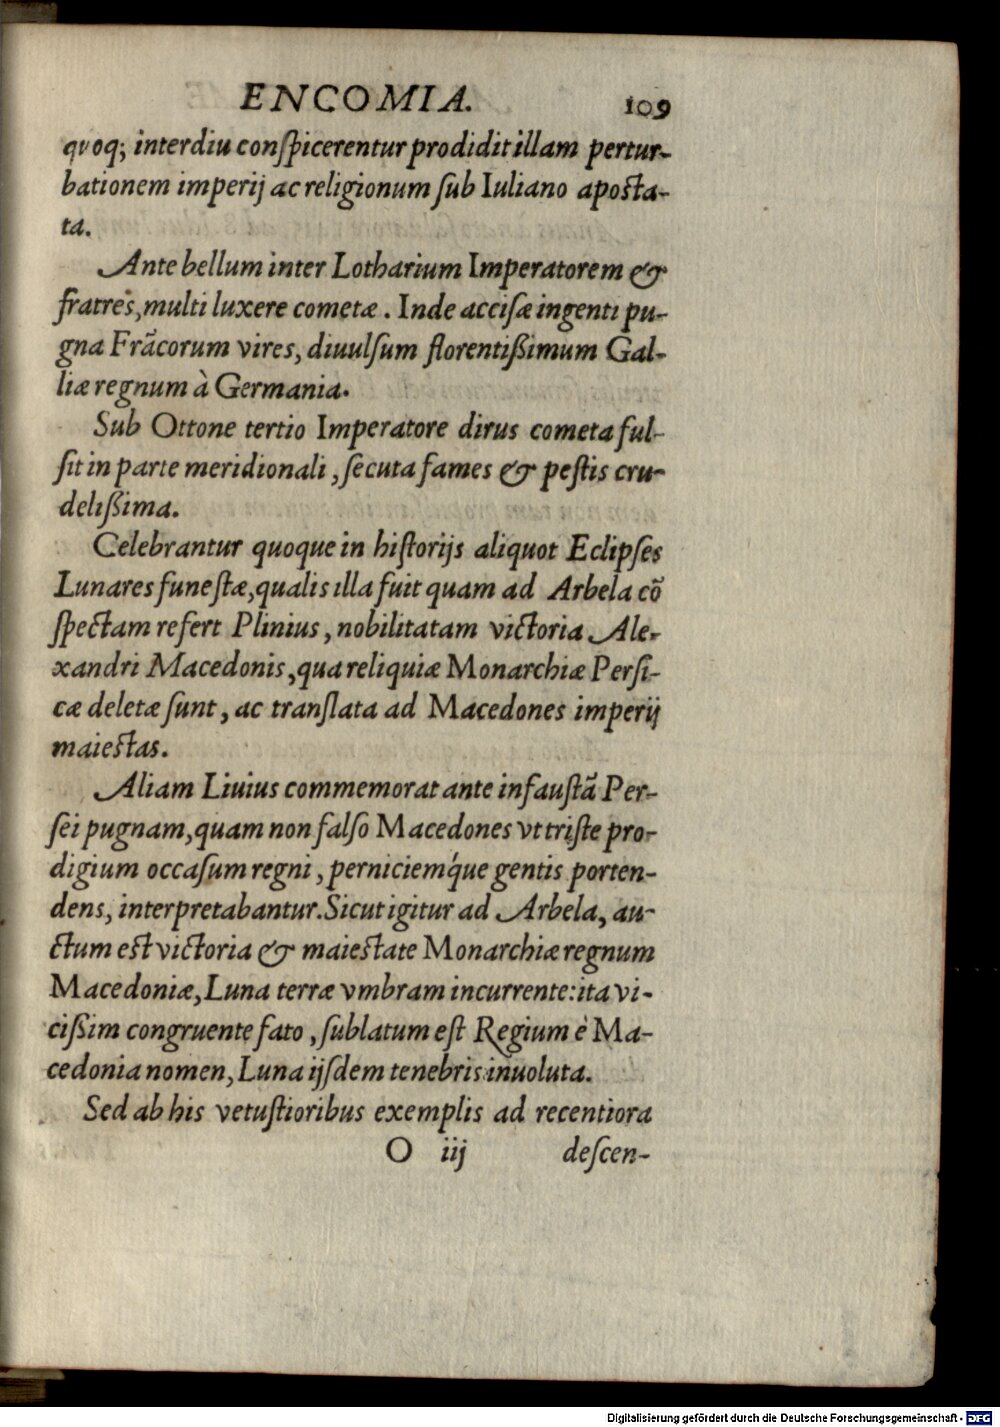 ENCOMIA. 109
quoq; interdiu conſpicerentur prodidit illam pertur-
bationem imperij ac religionum ſub Iuliano apoſta-
ta.
Ante bellum inter Lotharium Imperatorem &
fratres, multi luxere cometæ. Inde acciſæ ingenti pu-
gna Frācorum vires, diuulſum florentißimum Gal-
liæ regnum à Germania.
Sub Ottone tertio Imperatore dirus cometa ful-
ſit in parte meridionali, ſecuta fames & peſtis cru-
delißima.
Celebrantur quoque in hiſtorijs aliquot Eclipſes
Lunares funeſtæ, qualis illa fuit quam ad Arbela cō
ſpectam refert Plinius, nobilitatam victoria Ale-
xandri Macedonis, qua reliquiæ Monarchiæ Perſi-
cæ deletæ ſunt, ac tranſlata ad Macedones imperij
maieſtas.
Aliam Liuius commemorat ante infauſtā Per-
ſei pugnam, quam non falſo Macedones vt triſte pro-
digium occaſum regni, perniciemq́ue gentis porten-
dens, interpretabantur. Sicut igitur ad Arbela, au-
ctum eſt victoria & maieſtate Monarchiæ regnum
Macedoniæ, Luna terræ vmbram incurrente: ita vi-
cißim congruente fato, ſublatum eſt Regium è Ma-
cedonia nomen, Luna ijſdem tenebris inuoluta.
Sed ab his vetuſtioribus exemplis ad recentiora
O iij deſcen-
Digitalisierung gefördert durch die Deutsche Forschungsgemeinschaft - DFG